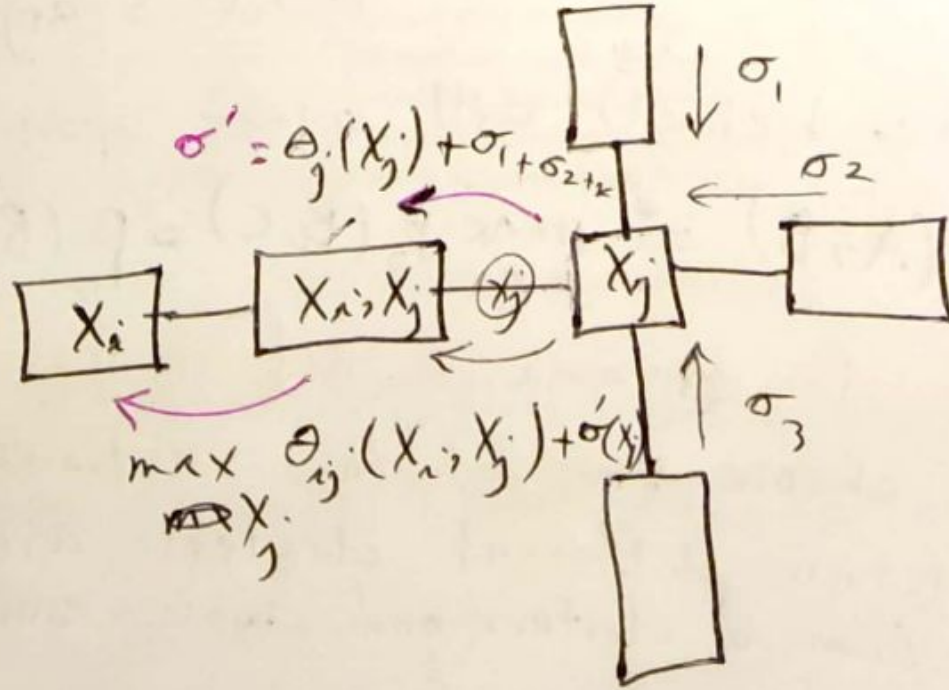 σ₁
σ' = θⱼ(Xⱼ) + σ₁ + σ₂ +
σ₂
Xᵢ
Xᵢ, Xⱼ
Xⱼ
Xⱼ
σ₃
max θᵢⱼ(Xᵢ, Xⱼ) + σ'(Xⱼ)
Xⱼ